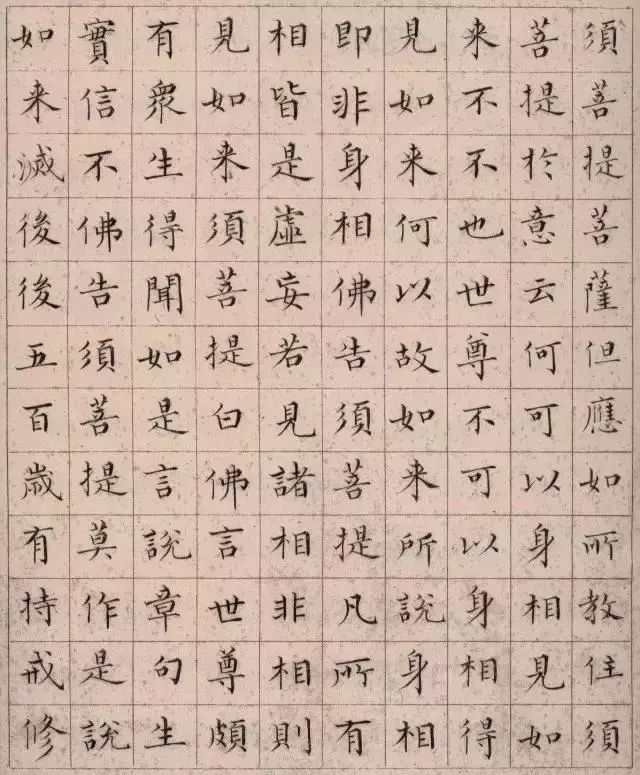 須菩提菩薩但應如所教住須
菩提於意云何可以身相見如
来不不也世尊不可以身相得
見如来何以故如来所說身相
即非身相佛告須菩提凡所有
相皆是虛妄若見諸相非相則
見如来須菩提白佛言世尊頗
有衆生得聞如是言說章句生
實信不佛告須菩提莫作是說
如来滅後後五百歲有持戒修